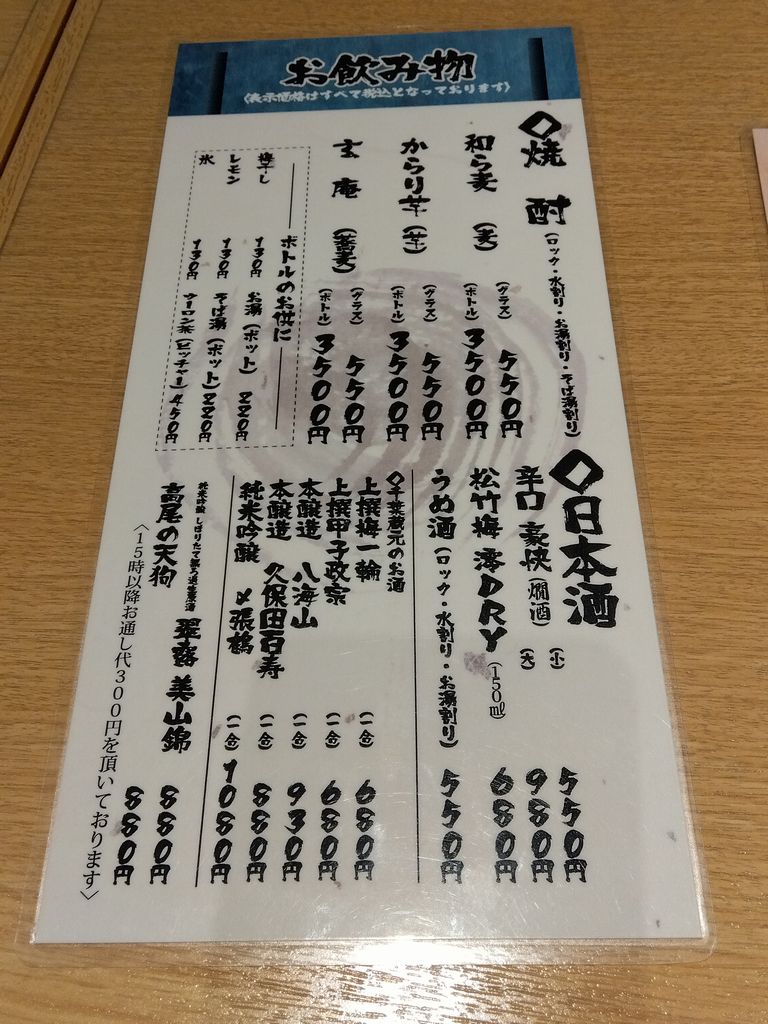 お飲み物
〈表示価格はすべて税込となっております〉
◇焼酎(ロック・水割り・お湯割り・そば湯割り)
和ら麦(麦)
(グラス)550円
(ボトル)3500円
からり芋(芋)
(グラス)550円
(ボトル)3500円
玄庵(蕎麦)
(グラス)550円
(ボトル)3500円
ボトルのお供に
梅干し 130円
レモン 130円
氷 130円
お湯(ポット)220円
そば湯(ポット)220円
ウーロン茶(ピッチャー)450円
◇日本酒
辛口 豪快(燗酒)
(小)550円
(大)980円
松竹梅 澪DRY(150㎖)680円
うめ酒(ロック・水割り・お湯割り)550円
◇千葉蔵元のお酒
上撰梅一輪(一合)680円
上撰甲子政宗(一合)680円
本醸造 八海山(一合)930円
本醸造 久保田百寿(一合)880円
純米吟醸 〆張鶴(一合)1080円
純米吟醸 しぼりたて 翠露 美山錦 880円
高尾の天狗 880円
〈15時以降お通し代300円を頂いております〉